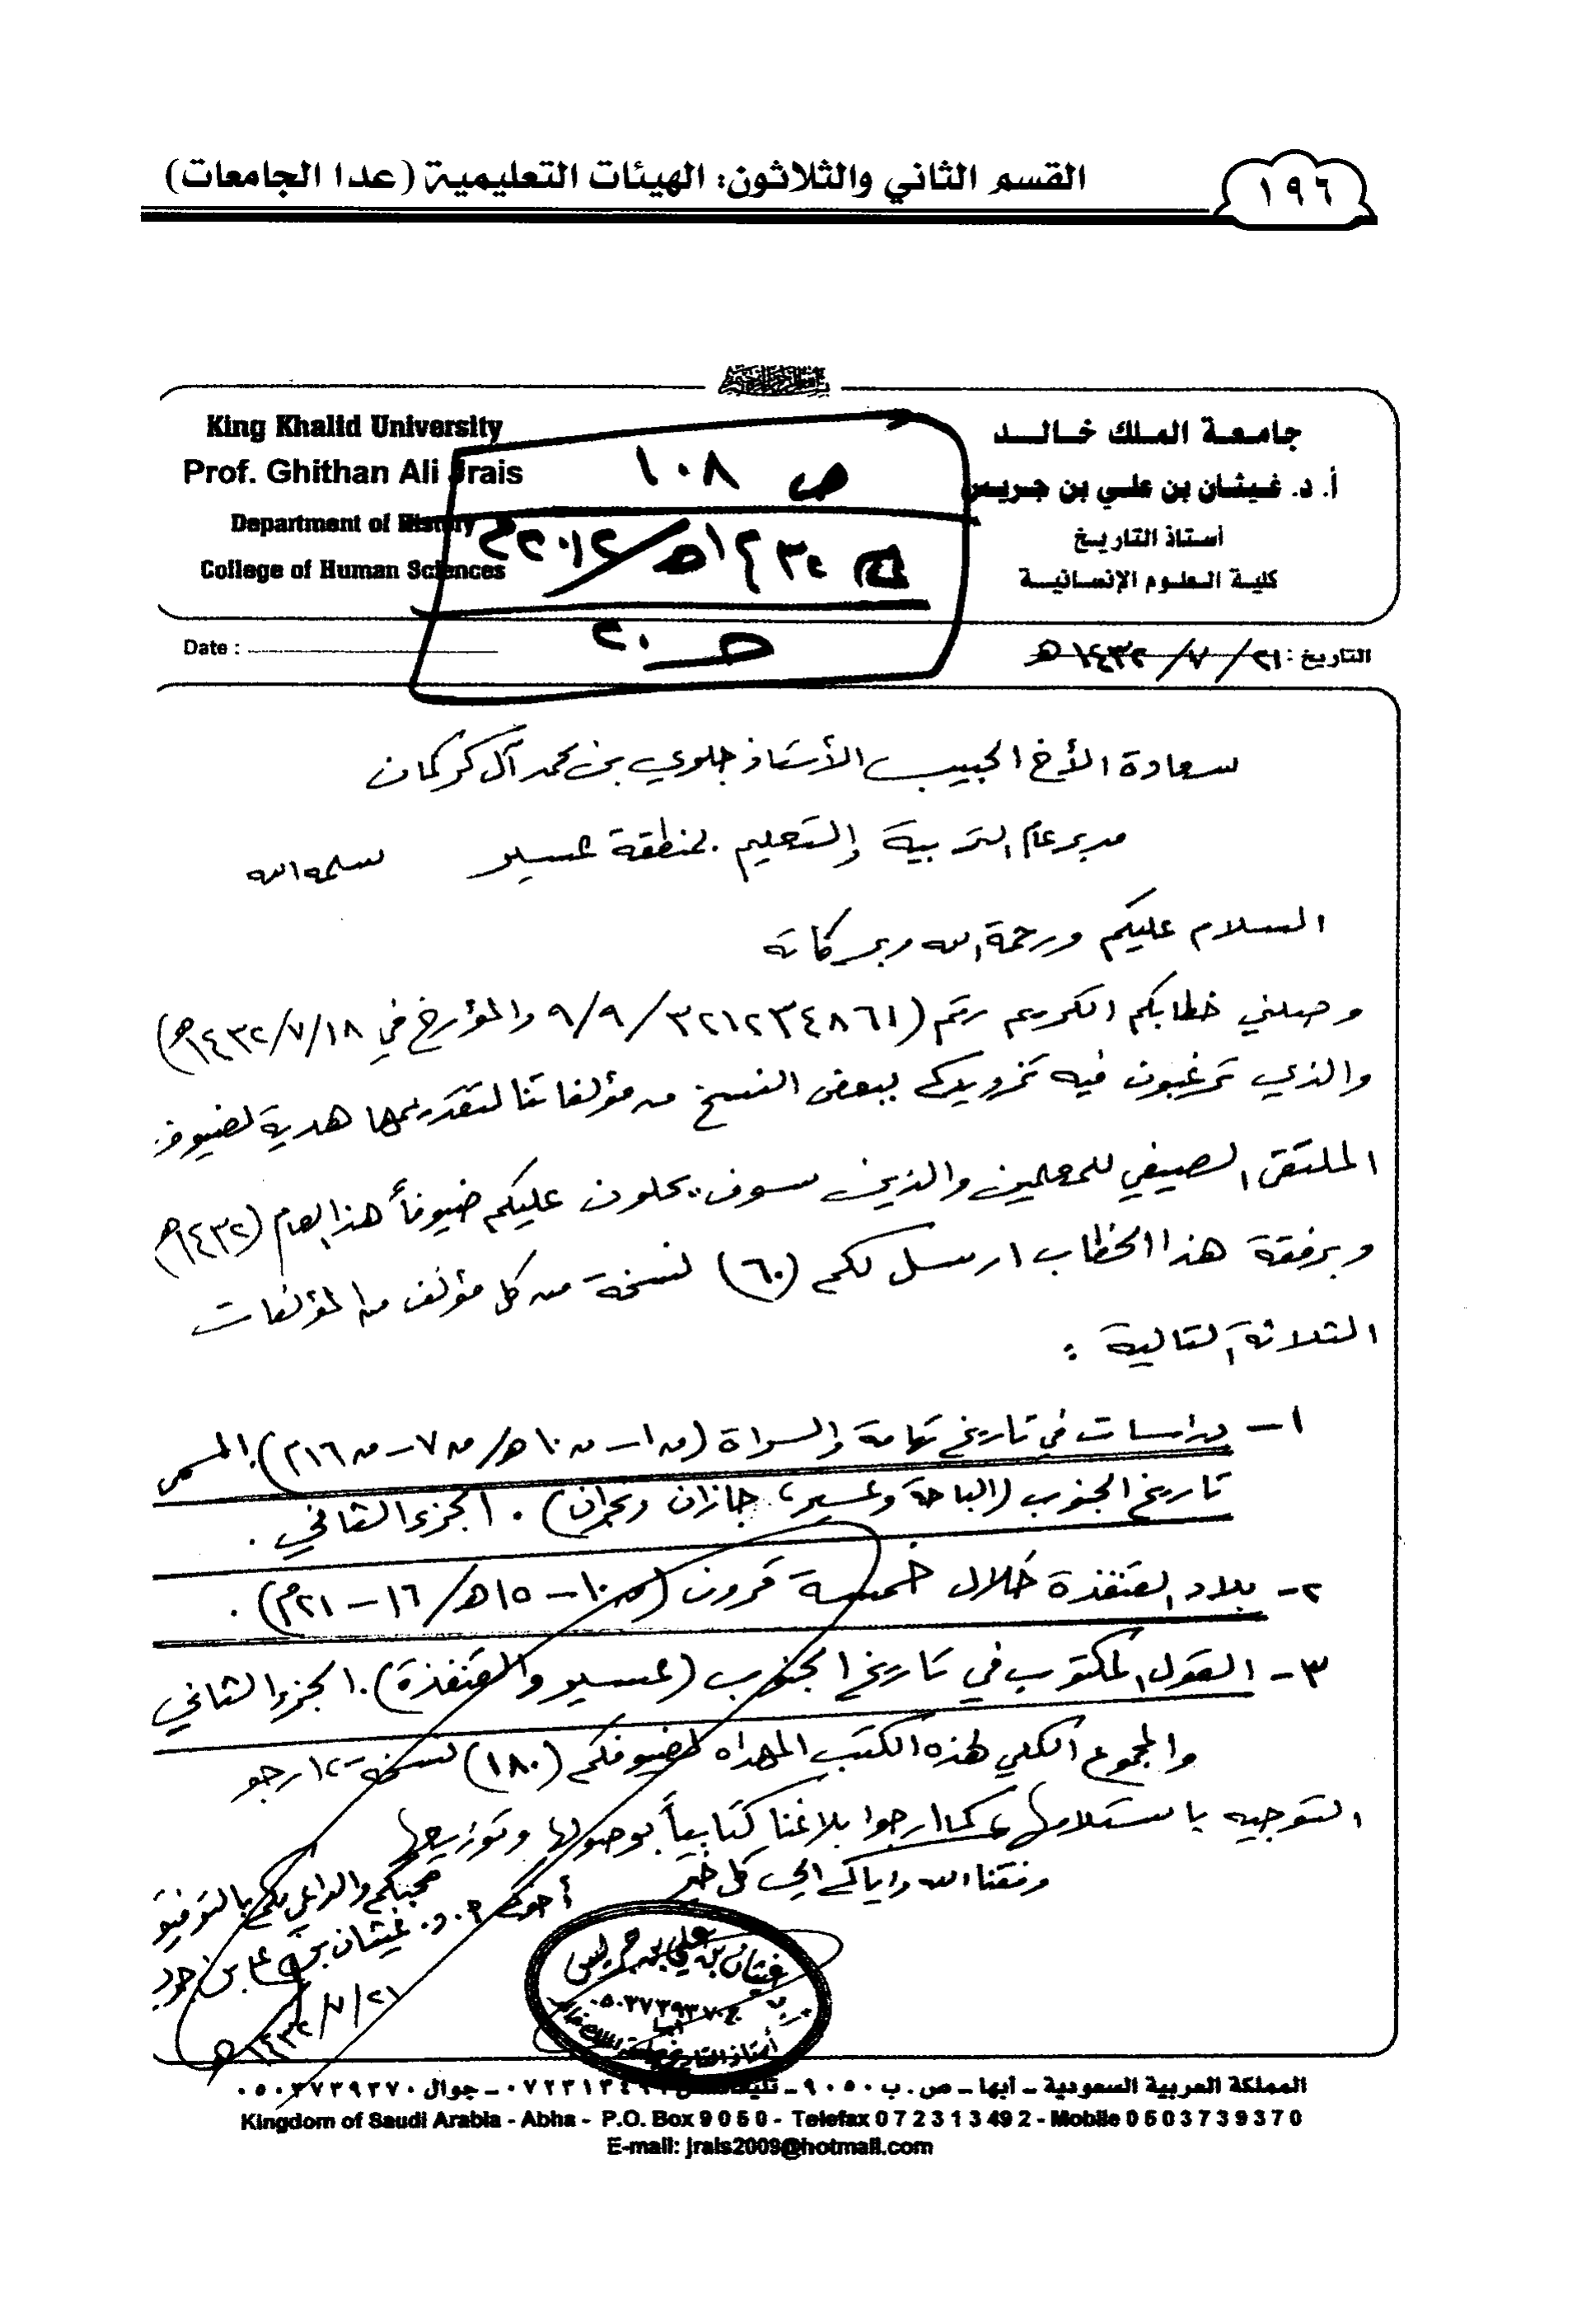 ١٩٦
القسم الثاني والثلاثون: الهيئات التعليمية (عدا الجامعات)
جامعة الملك خالد
أ. د. غيثان بن علي بن جريس
أستاذ التاريخ
كلية العلوم الإنسانية
King Khalid University
Prof. Ghithan Ali Jrais
Department of History
College of Human Sciences
ص ١٠٨
١٤٣٤هـ/٢٠١٢م
حـ ٢٠
التاريخ: ٢١/ ٧/ ١٤٣٢هـ
Date :
سعادة الأخ الحبيب الأستاذ جلوي بن محمد آل كركمان
مدير عام التربية والتعليم بمنطقة عسير سلمه الله
السلام عليكم ورحمة الله وبركاته
وصلني خطابكم الكريم رقم (٣٢١٢٣٤٨٦١/٩/٩ والمؤرخ في ١٤٣٢/٧/١٨هـ)
والذي ترغبون فيه تزويدكم ببعض النسخ من مؤلفاتنا لتقديمها هدية لضيوف
الملتقى الصيفي للمعلمين والذين سوف يحلون عليكم ضيوفاً هذا العام (١٤٣٢هـ)
وبرفقة هذا الخطاب ارسل لكم (٦٠) نسخة من كل مؤلف من المؤلفات
الثلاثة التالية :
١- دراسات في تاريخ تهامة والسراة (ق١- ق١٠هـ/ ق٧- ق١٦م). المسمى
تاريخ الجنوب (الباحة وعسير، جازان ونجران) . الجزء الثاني .
٢- بلاد القنفذة خلال خمسة قرون (ق١٠- ١٥هـ/ ١٦- ٢١م) .
٣- القول المكتوب في تاريخ الجنوب (عسير والقنفذة). الجزء الثاني
والمجموع الكلي لهذه الكتب المهداه لضيوفكم (١٨٠) نسخة، ارجو
التوجيه باستلامها، كما ارجوا بلاغنا كتابياً بوصولها وتوزيعها
وفقنا الله واياكم الى كل خير
محبكم والداعي لكم بالتوفيق
أخوكم أ. د. غيثان بن علي بن جريس
٢١/٧/١٤٣٢هـ
غيثان بن علي بن جريس
ج ٠٥٠٣٧٣٩٣٧٠
أبها
أستاذ التاريخ بجامعة الملك خالد
المملكة العربية السعودية - أبها - ص. ب ٩٠٥٠ - تليفاكس ٠٧٢٣١٣٤٩٢ - جوال ٠٥٠٣٧٣٩٣٧٠
Kingdom of Saudi Arabia - Abha - P.O. Box 9 0 5 0 - Telefax 0 7 2 3 1 3 4 9 2 - Mobile 0 5 0 3 7 3 9 3 7 0
E-mail: jrais2009@hotmail.com